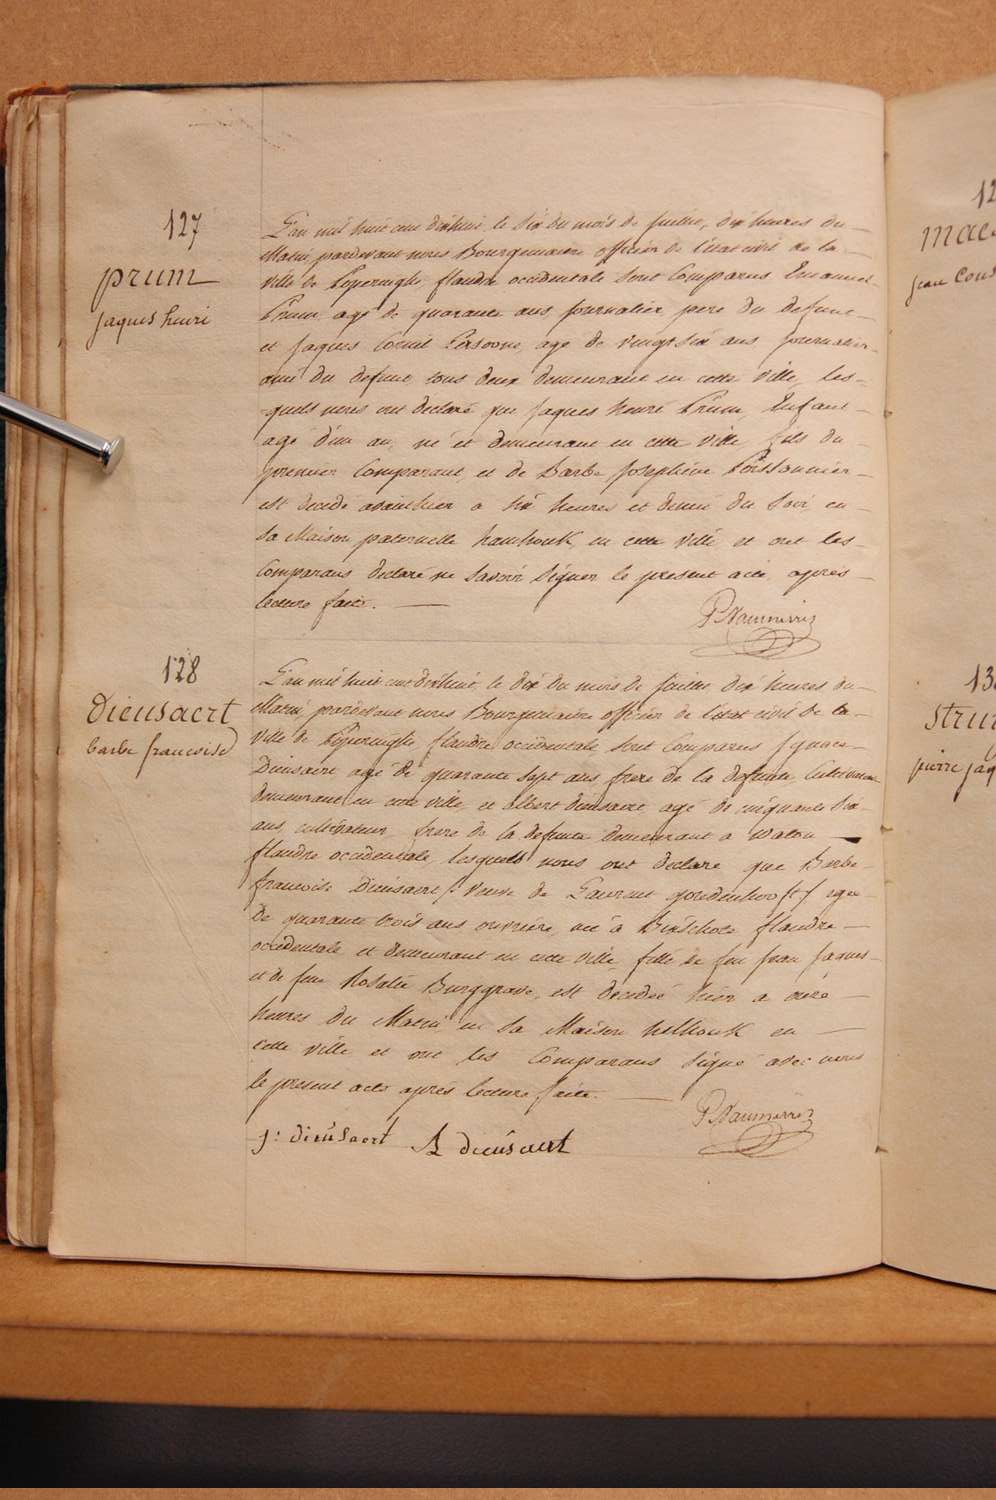 127
prum
jaques henri
L'an mil huit cent dixhuit, le dix du mois de juillet, dix heures du
Matin, pardevant nous Bourguemaitre officier de l'état civil de la
ville de Poperinghe flandre occidentale sont Comparus Emanuel
Prum, agé de quarante ans journalier, pere du defunt
et Jaques Persoone, agé de vingtsix ans journalier
ami du defunt, tous deux demeurant en cette ville, les-
quels nous ont declaré que Jaques henri Prum, Enfant
agé d'un an, né et demeurant en cette ville fils du
premier Comparant, et de Barbe Josephine
est decedé avanthier a six heures et demie du Soir, en
sa Maison paternelle en cette ville et ont les
Comparans declaré ne savoir signer le present acte, apres
lecture faite.
128
Dieusaert
barbe francoise
L'an mil huit cent dixhuit le dix du mois de juillet dix heures du
Matin, pardevant nous Bourguemaitre officier de l'état civil de la
ville de Poperinghe flandre occidentale sont Comparus Ignace
Dieusaert agé de quarante sept ans frere de la defunte Cultivateur
demeurant en cette ville, et albert dieusaert agé de cinquante six
ans, cultivateur, frere de la defunte demeurant a Watou
flandre occidentale, lesquels nous ont declare que Barbe
francoise Dieusaert veuve de Laurent agee
de quarante trois ans ouvrière, née à Bixschote flandre
occidentale et demeurant en cette ville, fille de feu Jean Jaques
et de feue Rosalie Burggrave, est decedée hier a onze
heures du Matin en sa Maison helhouk en
cette ville et ont les Comparans signé avec nous
le present acte apres lecture faite.
j: dieusaert A dieusaert
12
mae
jean
13
strur
pierre jaq